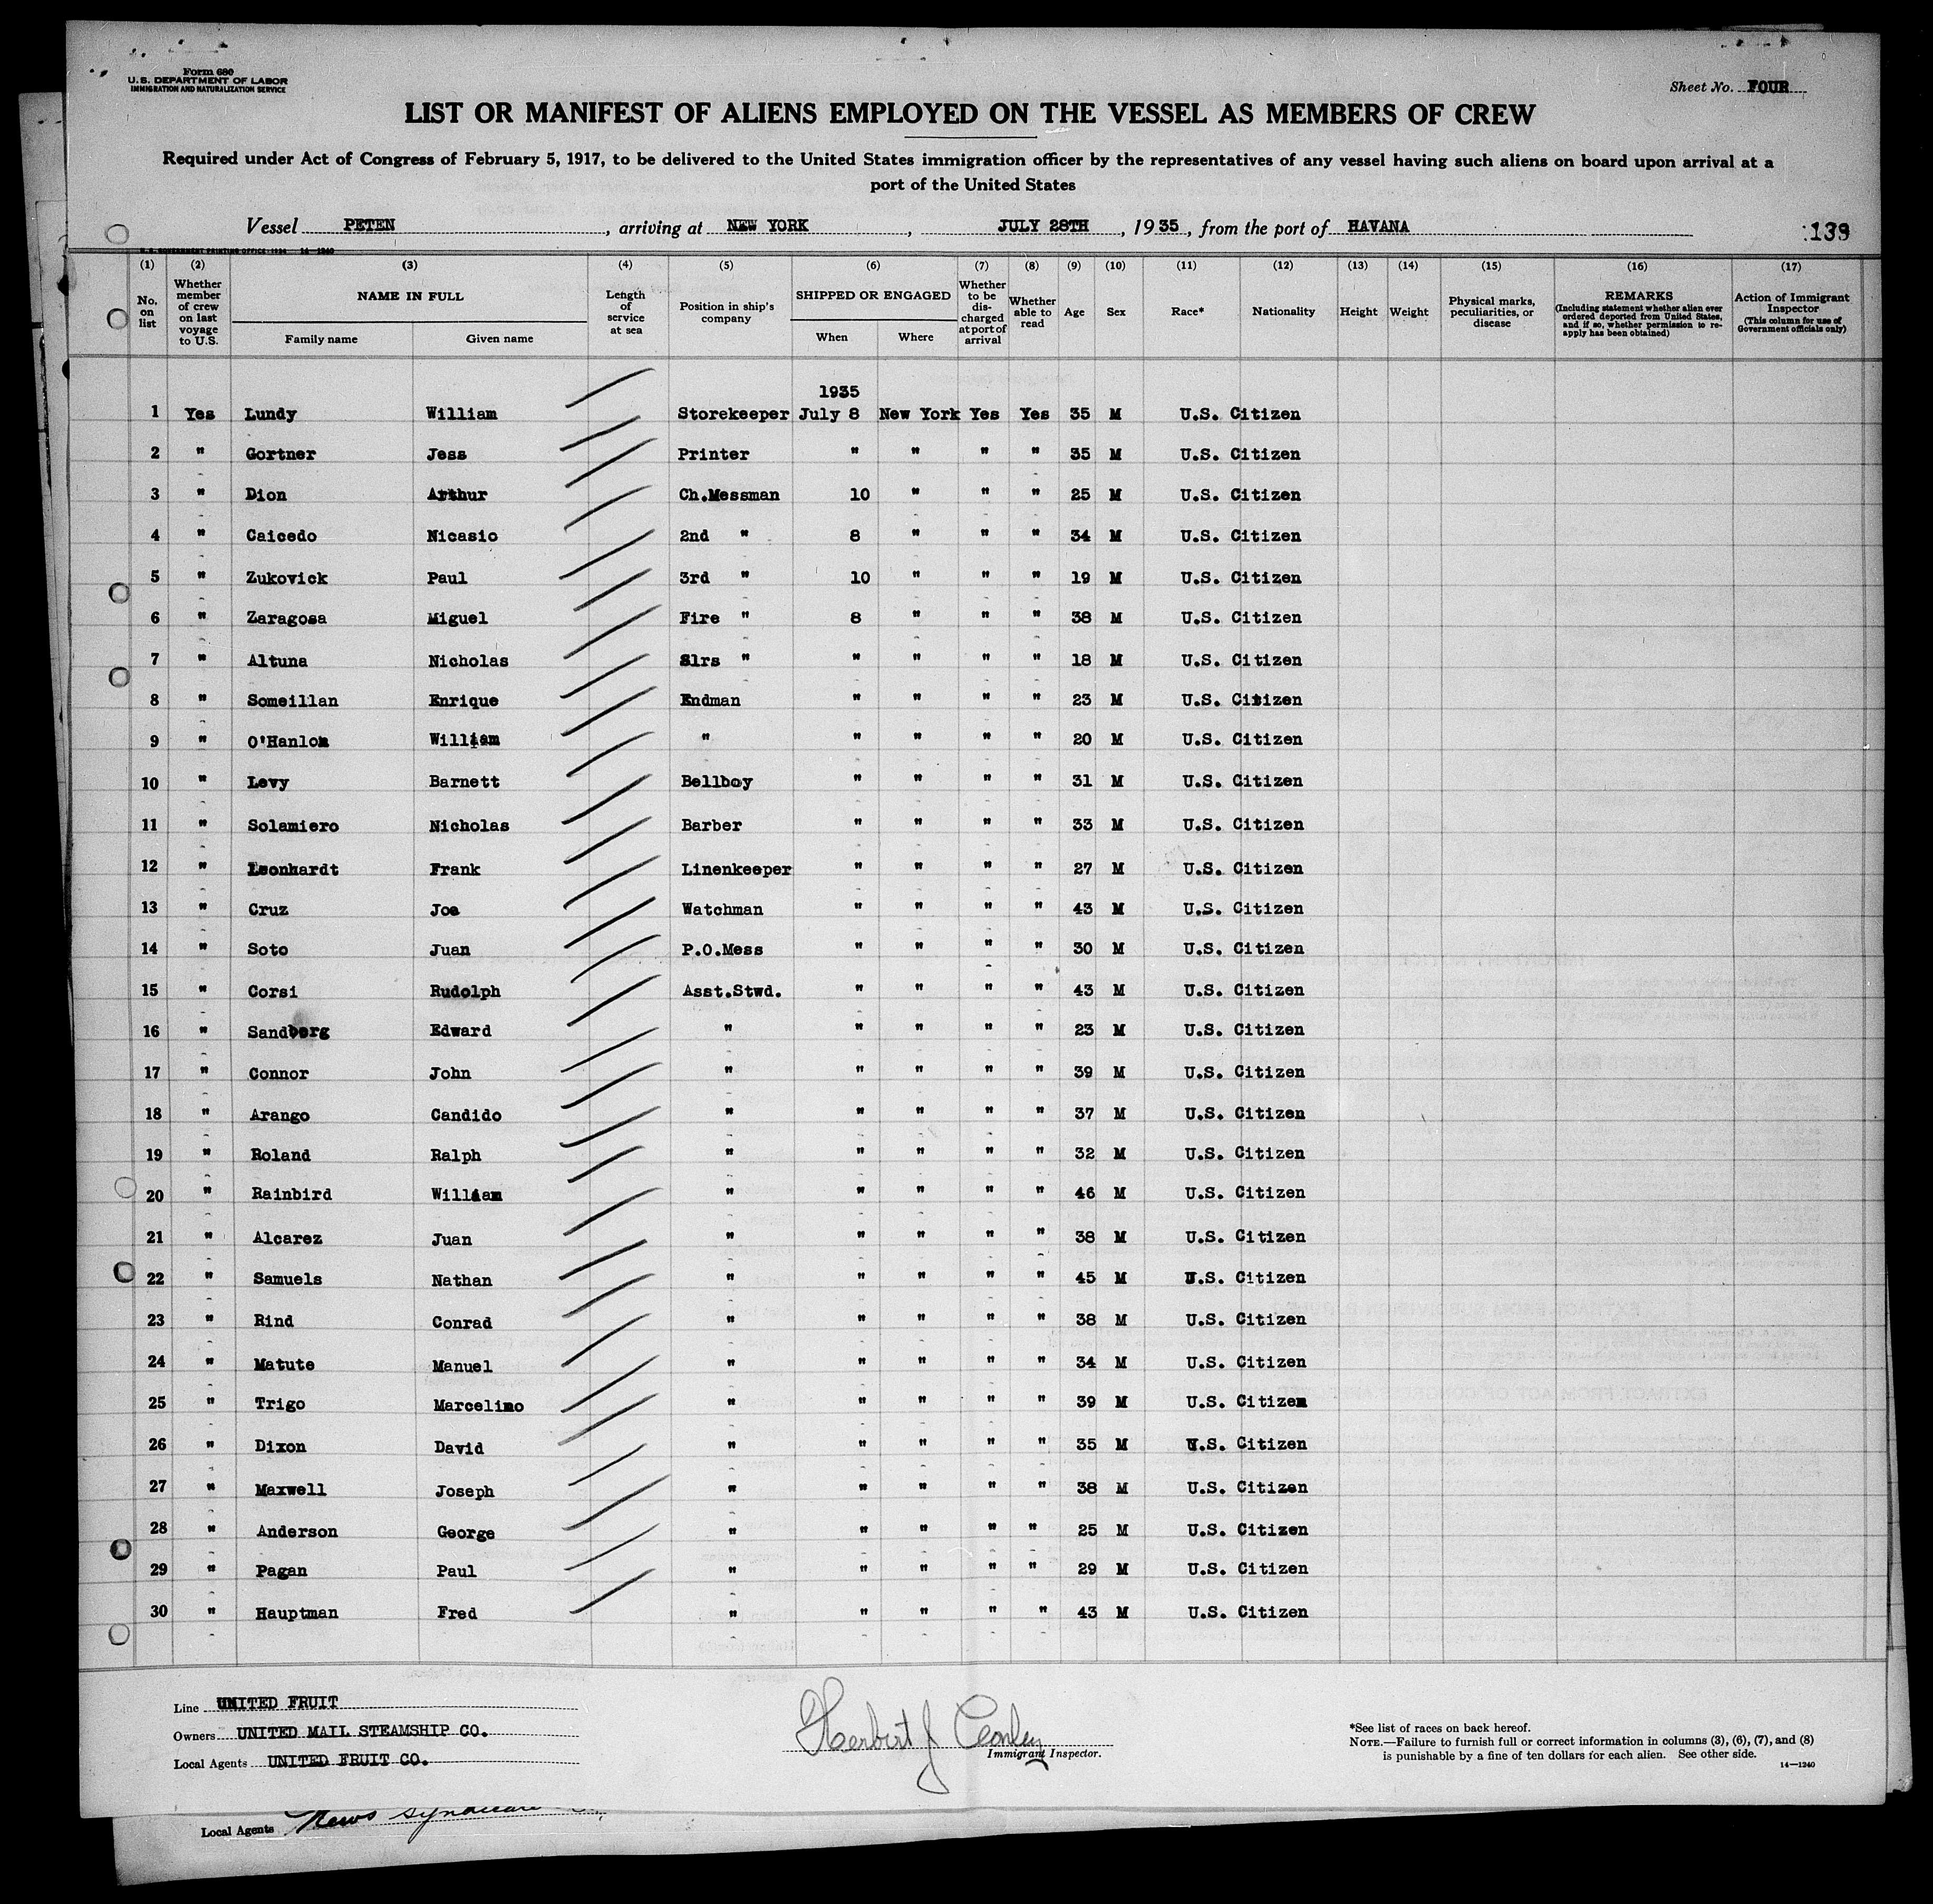 Form 680
U. S. DEPARTMENT OF LABOR
IMMIGRATION AND NATURALIZATION SERVICE
Sheet No. FOUR
LIST OR MANIFEST OF ALIENS EMPLOYED ON THE VESSEL AS MEMBERS OF CREW
Required under Act of Congress of February 5, 1917, to be delivered to the United States immigration officer by the representatives of any vessel having such aliens on board upon arrival at a
port of the United States
Vessel PETEN, arriving at NEW YORK, JULY 28TH, 1935, from the port of HAVANA
139
U. S. GOVERNMENT PRINTING OFFICE: 1934 14-1240
(1) (2) (3) (4) (5) (6) (7) (8) (9) (10) (11) (12) (13) (14) (15) (16) (17)
No. on list
Whether member of crew on last voyage to U.S.
NAME IN FULL
Family name Given name
Length of service at sea
Position in ship's company
SHIPPED OR ENGAGED
When Where
Whether to be discharged at port of arrival
Whether able to read
Age
Sex
Race*
Nationality
Height
Weight
Physical marks, peculiarities, or disease
REMARKS
(Including statement whether alien ever ordered deported from United States, and if so, whether permission to re-apply has been obtained)
Action of Immigrant Inspector
(This column for use of Government officials only)
1935
1 Yes Lundy William Storekeeper July 8 New York Yes Yes 35 M U.S. Citizen
2 " Gortner Jess Printer " " " " 35 M U.S. Citizen
3 " Dion Arthur Ch.Messman 10 " " " 25 M U.S. Citizen
4 " Caicedo Nicasio 2nd " 8 " " " 34 M U.S. Citizen
5 " Zukovick Paul 3rd " 10 " " " 19 M U.S. Citizen
6 " Zaragosa Miguel Fire " 8 " " " 38 M U.S. Citizen
7 " Altuna Nicholas Slrs " " " " " 18 M U.S. Citizen
8 " Someillan Enrique Endman " " " " 23 M U.S. Citizen
9 " O'Hanlon William " " " " " 20 M U.S. Citizen
10 " Levy Barnett Bellboy " " " " 31 M U.S. Citizen
11 " Solamiero Nicholas Barber " " " " 33 M U.S. Citizen
12 " Leonhardt Frank Linenkeeper " " " " 27 M U.S. Citizen
13 " Cruz Joe Watchman " " " " 43 M U.S. Citizen
14 " Soto Juan P.O.Mess " " " " 30 M U.S. Citizen
15 " Corsi Rudolph Asst.Stwd. " " " " 43 M U.S. Citizen
16 " Sandberg Edward " " " " " 23 M U.S. Citizen
17 " Connor John " " " " " 39 M U.S. Citizen
18 " Arango Candido " " " " " 37 M U.S. Citizen
19 " Roland Ralph " " " " " 32 M U.S. Citizen
20 " Rainbird William " " " " " 46 M U.S. Citizen
21 " Alcarez Juan " " " " " 38 M U.S. Citizen
22 " Samuels Nathan " " " " " 45 M U.S. Citizen
23 " Rind Conrad " " " " " 38 M U.S. Citizen
24 " Matute Manuel " " " " " 34 M U.S. Citizen
25 " Trigo Marcelino " " " " " 39 M U.S. Citizen
26 " Dixon David " " " " " 35 M U.S. Citizen
27 " Maxwell Joseph " " " " " 38 M U.S. Citizen
28 " Anderson George " " " " " 25 M U.S. Citizen
29 " Pagan Paul " " " " " 29 M U.S. Citizen
30 " Hauptman Fred " " " " " 43 M U.S. Citizen
Line UNITED FRUIT
Owners UNITED MAIL STEAMSHIP CO.
Local Agents UNITED FRUIT CO.
Herbert J Conley
Immigrant Inspector.
*See list of races on back hereof.
NOTE.—Failure to furnish full or correct information in columns (3), (6), (7), and (8)
is punishable by a fine of ten dollars for each alien. See other side.
14—1240
Local Agents News Syndicate